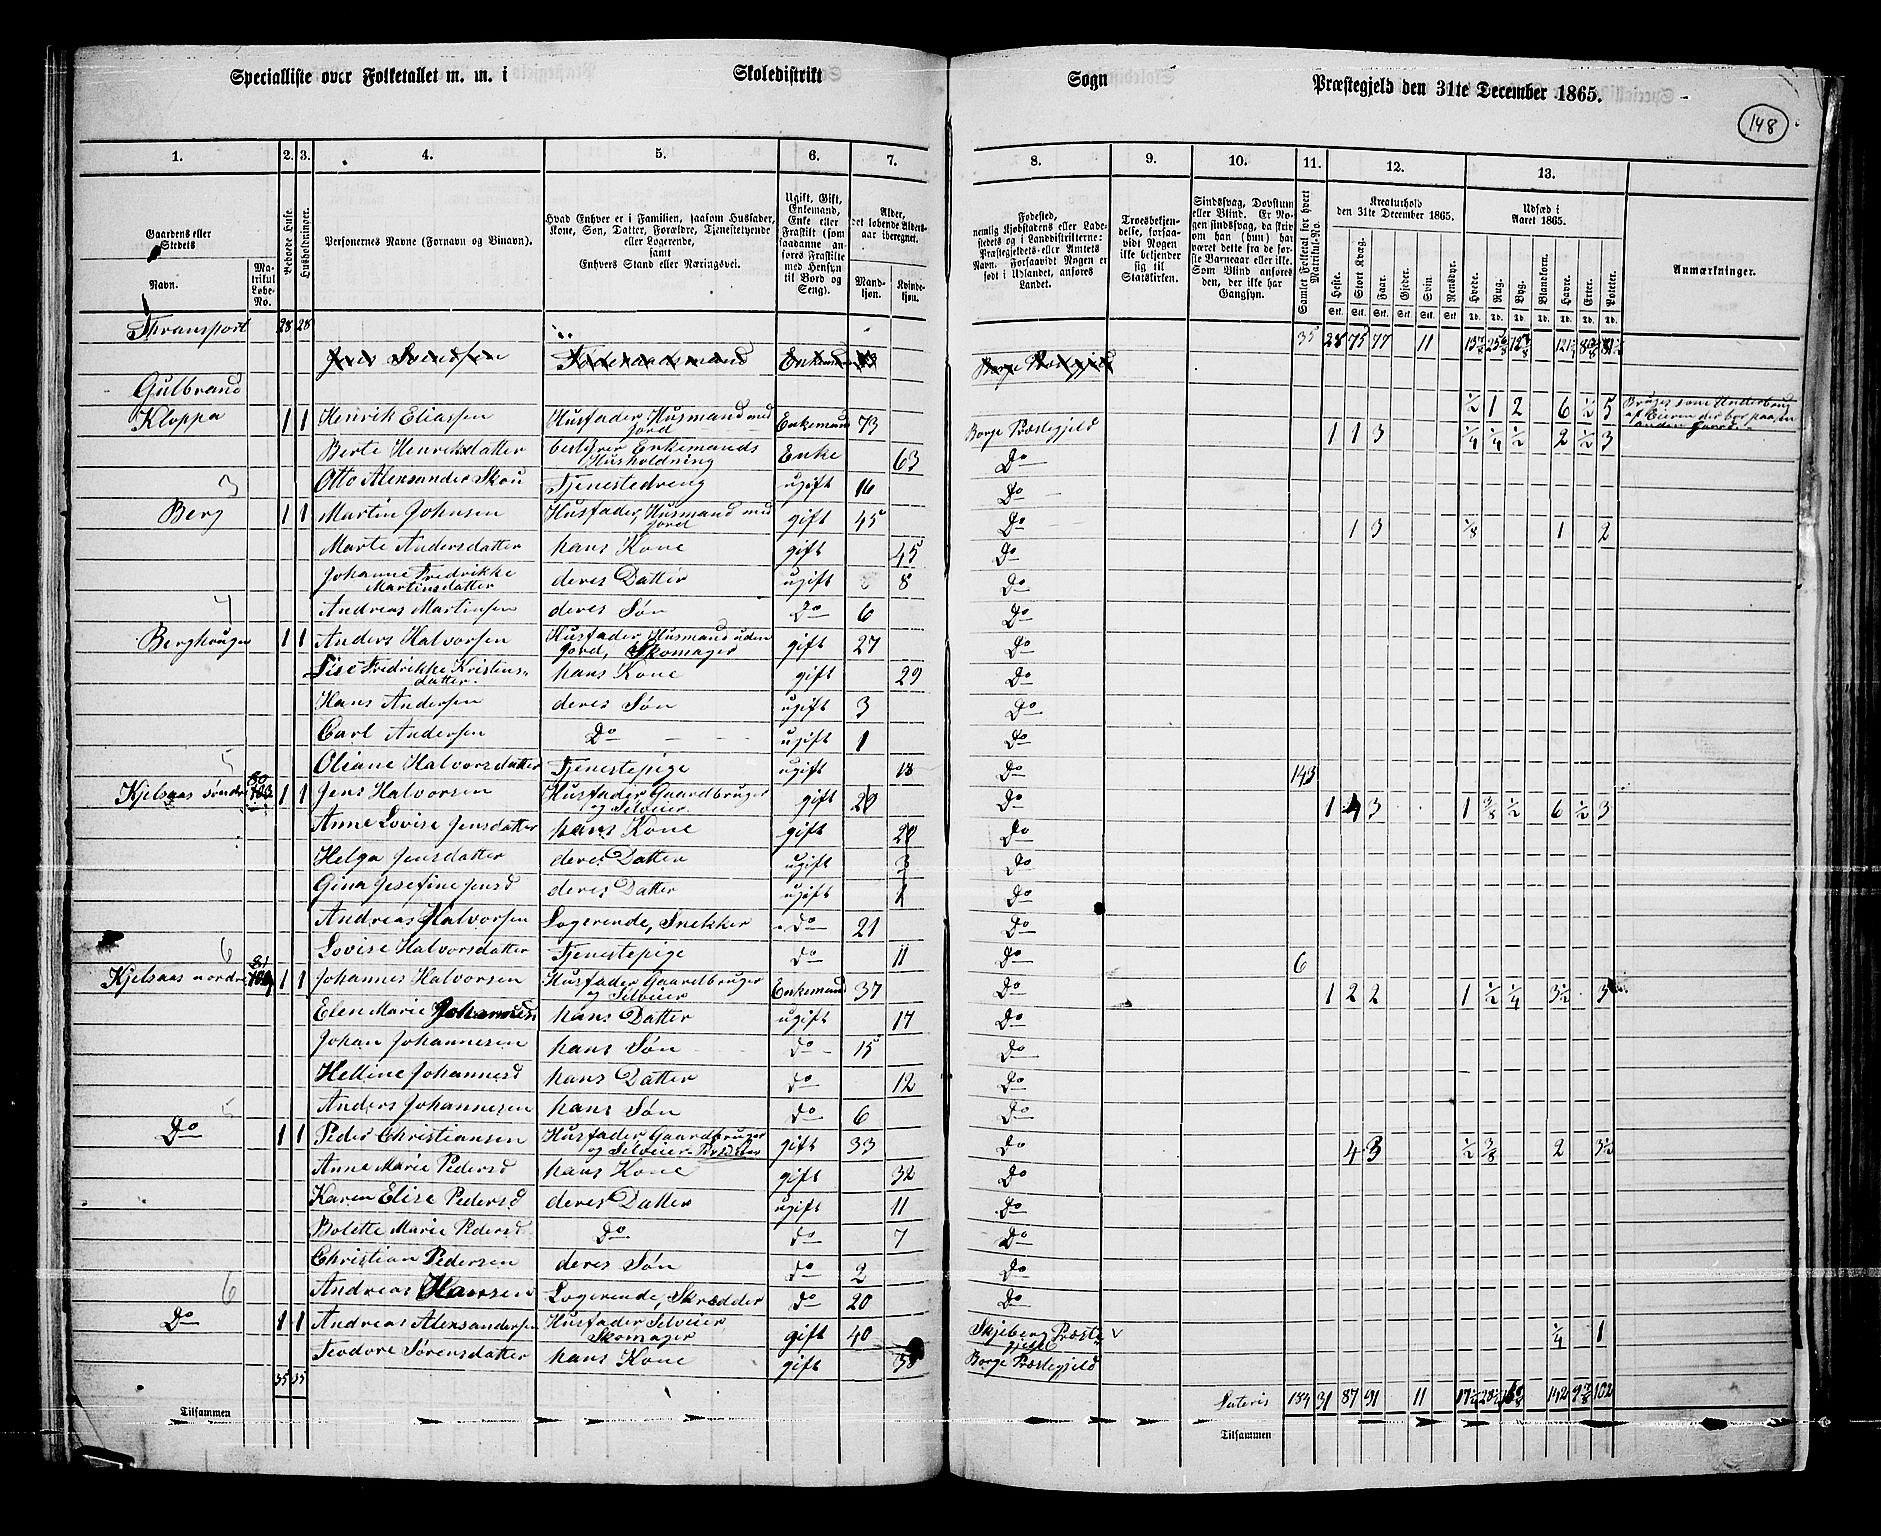 Specialliste over Folketallet m. m. i Skoledistrikt Sogn Præstegjeld den 31te December 1865.
148
1. 2. 3. 4. 5. 6. 7. 8. 9. 10. 11. 12. 13.
Gaardens eller Stedets
Navn.
Matrikul Løbe-No.
Beboede Huse.
Husholdninger.
Personernes Navne (Fornavn og Binavn).
Hvad Enhver er i Familien, saasom Husfader, Kone, Søn, Datter, Forældre, Tjenestetyende eller Logerende, samt Enhvers Stand eller Næringsvei.
Ugift, Gift, Enkemand, Enke eller Fraskilt (som saadanne anføres Fraskilte med Hensyn til Bord og Seng).
Alder, det løbende Alders-aar iberegnet.
Mandkjøn. Kvindekjøn.
Fødested, nemlig Kjøbstadens eller Ladestedets og i Landdistrikterne: Præstegjeldets eller Amtets Navn. Forsaavidt Nogen er født i Udlandet, anføres Landet.
Troesbekjendelse, forsaavidt Nogen ikke bekjender sig til Statskirken.
Sindssvag, Døvstum eller Blind. Er Nogen sindssvag, da skrives om han (hun) har været dette fra de første Barneaar eller ikke. Som Blind anføres den, der ikke har Gangsyn.
Samlet Folketal for hvert Matrikul-No.
Kreaturhold den 31te December 1865.
Heste. Stort Kvæg. Faar. Gjeder. Svin. Rensdyr.
Udsæd i Aaret 1865.
Hvede. Rug. Byg. Blandkorn. Havre. Erter. Poteter.
Anmærkninger.
Transport 28 28 35 28 75 77 11
Jens Svendsen Føderaadsmand Enkemand Borge Præstegjeld
Gulbrand ½ 1 2 6 ½ 5
Kloppa 1 1 Henrik Eliassen Husfader, Husmand med Jord Enkemand 73 Borge Præstegjeld 1 1 3 ¼ ¼ ½ 2 ½ 3
Berte Henriksdatter bestyrer Enkemands Husholdning Enke 63 Do
3 Otto Alexander Skou Tjenestedreng ugift 16 Do
Berg 1 1 Martin Johnsen Husfader, Husmand med Jord gift 45 Do 1 3 ⅛ 1 2
Marte Andersdatter hans Kone gift 45 Do
Johanne Fredrikke Martinsdatter deres Datter ugift 8 Do
4 Andreas Martinsen deres Søn Do 6 Do
Berghaugen 1 1 Anders Halvorsen Husfader Husmand uden Jord, Skomager gift 27 Do
Lise Fredrikke Kristiansdatter hans Kone gift 29 Do
Hans Andersen deres Søn ugift 3 Do
Carl Andersen Do ugift 1 Do
5 Oliane Halvorsdatter Tjenestepige ugift 13 Do 143
Kjelsaas søndre 80 1 1 Jens Halvorsen Husfader Gaardbruger og Selveier gift 29 Do 1 4 3 1 ⅜ ½ 6 ½ 3
Anne Lovise Jensdatter hans Kone gift 28 Do
Helga Jensdatter deres Datter ugift 3 Do
Gina Josefine Jensd deres Datter ugift 1 Do
Andreas Halvorsen Logerende, Snekker Do 21 Do
6 Lovise Halvorsdatter Tjenestepige Do 11 Do 6
Kjelsaas nordre 81 1 1 Johannes Halvorsen Husfader Gaardbruger og Selveier Enkemand 37 Do 1 2 2 1 ½ ¼ 3½ 3
Elen Marie Johannesen hans Datter ugift 17 Do
Johan Johannesen hans Søn Do 15 Do
Helline Johannesd hans Datter Do 12 Do
5 Anders Johannesen hans Søn Do 6 Do
Do 1 1 Peder Christiansen Husfader Gaardbruger og Selveier gift 33 Do 4 3 ½ ⅜ 2 3½
Anne Marie Pedersd hans Kone gift 32 Do
Karen Elise Pedersd deres Datter ugift 11 Do
Bolette Marie Pedersd Do Do 7 Do
Christian Pedersen deres Søn Do 2 Do
6 Andreas Hansen Logerende, Skrædder Do 20 Do
Do 1 1 Andreas Alexandersen Husfader Selveier Skomager gift 40 Skjeberg Præstegjeld ¼ 1
Teodore Sørensdatter hans Kone gift Borge Præstegjeld
35 35 Lateris 184 31 87 91 11 142 9⅞ 102
Tilsammen Tilsammen